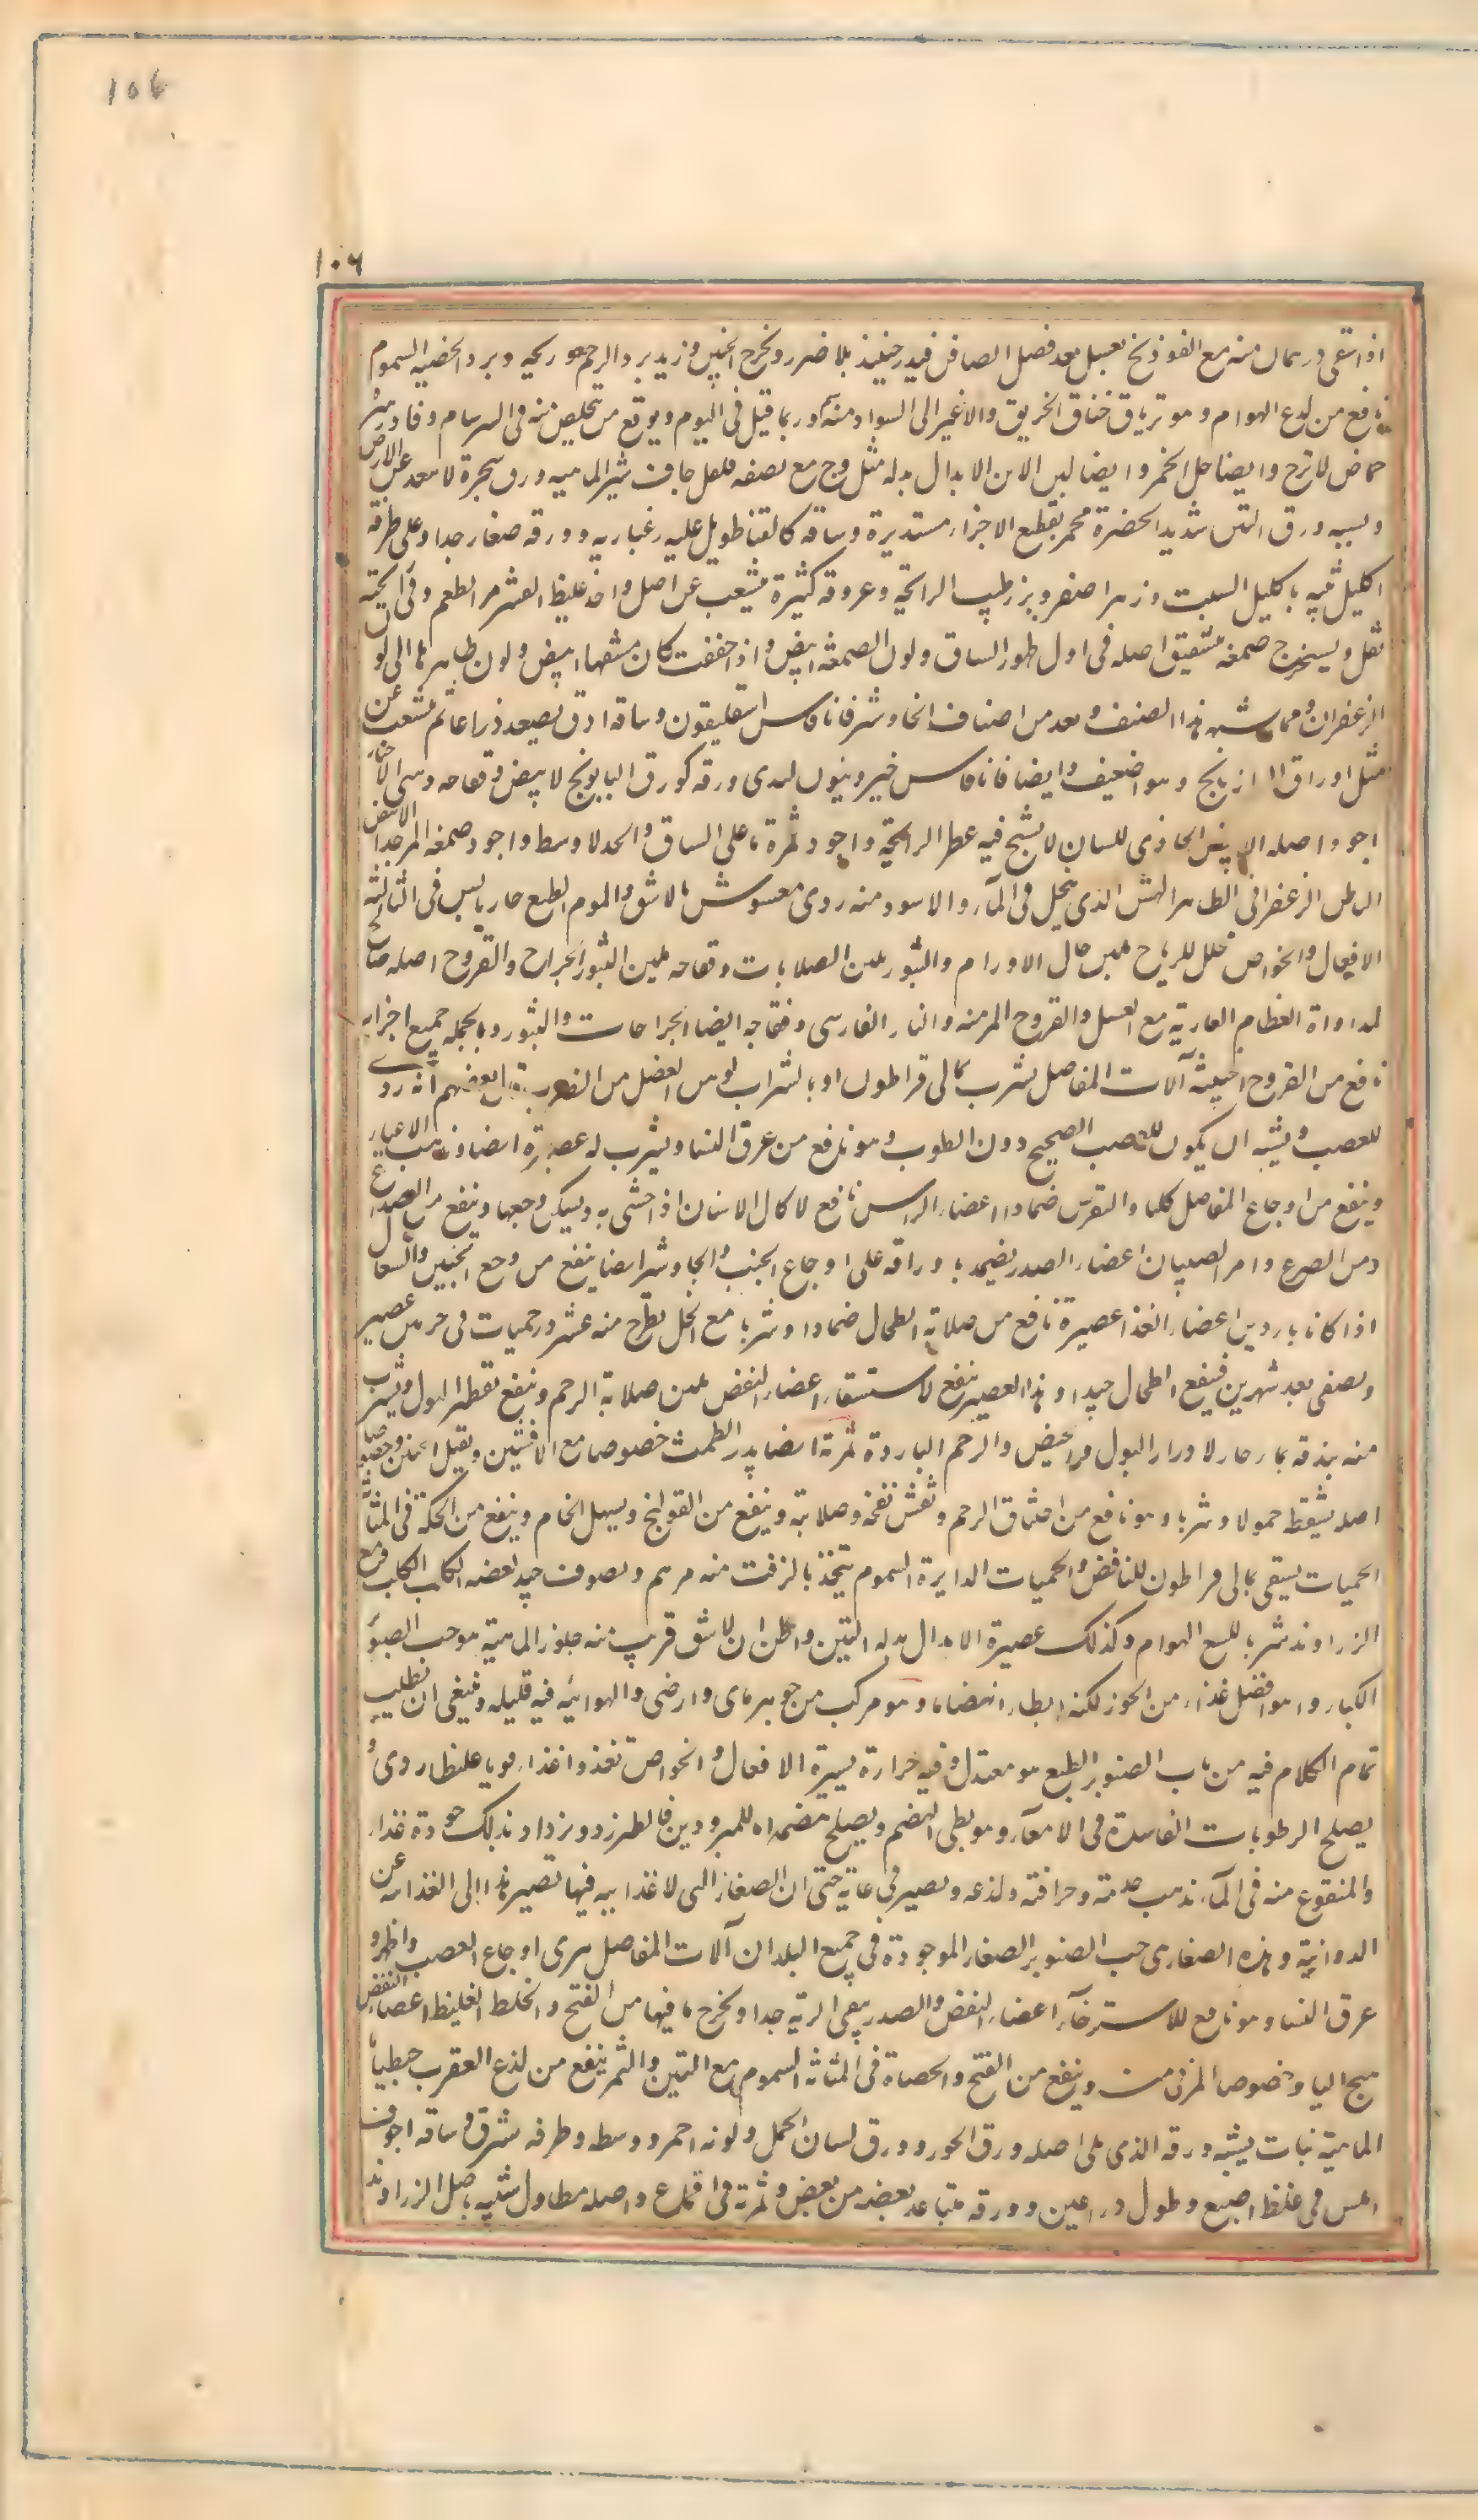 106
١٠٦
اذا سقى درهمان منه مع الفوذنج بعسل بعد فصل الصافن فيدر حينئذ بلا ضرر ويخرج الجنين ويزيد برد الرحم وريحه وبرد الخصية السموم
نافع من لدع الهوام وهو ترياق خناق الخريق والاغبر الى السواد منه سم وربما قتل فى اليوم ويوقع من يتخلص منه فى السرسام وفادزهره
حماض لاترج وايضا خل الخمر وايضا لبن الاتن الابدال بدله مثله وج مع نصفه فلفل جاوشير الماهيه ورق شجرة لا تبعد عن الارض
ويشبه ورق التين شديد الخضرة محمر بقطع الاجزاء مستديرة وساقه كالقنا طويل عليه زغبارية وورقه صغار جدا وعلى طرفه
اكليل شبيه باكليل الشبت وزهر اصفر وبزر طيب الرائحة وعروقه كثيرة متشعب عن اصل واحد غليظ القشر مر الطعم وفى رائحته
ثقل ويستخرج صمغه بتشقيق اصله فى اول ظهور الساق ولون الصمغة ابيض واذا جففت كان منشفها ابيض ولون ظاهرها الى لون
الزعفران ومما يشبه هذا الصنف ويعد من اصناف الجاوشير فاناقاس اسقليقون وساقه ادق يصعد ذراعا ثم يتشعب عن
مثل اوراق الرازيانج وهو اضعف وايضا فاناقاس خيرونيون الذى ورقه كورق البابونج لابيض وفقاحه ذهبى الاختيار
اجود اصله الابيض الحاذى للسان لا يتشنج فيه عطر الرائحة واجود ثمرته ما على الساق والحد لاوسط واجود صمغه المر جدا الابيض
الباطن الزعفرانى الظاهر الهش الذى ينحل فى الماء والاسود منه ردى مغشوش بالاشق والموم الطبع حار يابس فى الثالثة
الافعال والخواص محلل للرياح ملين جال الاورام والبثور ملين الصلابات وفقاحه ملين البثور الجراح والقروح اصله صالح
لمداواة العظام العارية مع العسل والقروح المزمنه والنار الفارسى وفقاحه ايضا الجراحات والبثور وبالجمله جميع اجزايه
نافع من القروح الخبيثة آلات المفاصل يشرب بمالى قراطون او بشراب لوهن العضل من الضرب بعضهم انه ردى
للعصب ويشبه ان يكون للعصب الصحيح دون الطوب وهو نافع من عرق النسا ويشرب له عصيرته ايضا ويذهب الاعياء
وينفع من اوجاع المفاصل كلها والنقرس ضمادا اعضاء الراس نافع لاكال الاسنان اذا حشى به ويسكن وجعها وينفع من الصداع
ومن الصرع وام الصبيان اعضاء الصدر يضمد باوراقه على اوجاع الجنب والجاوشير ايضا ينفع من وجع الجنبين والسعال
اذا كانا باردين اعضاء الغذا عصيرة نافع من صلابة الطحال ضمادا وشربا مع الخل يطرح منه عشر درخميات فى جرتين عصير
ويصفى بعد شهرين فينفع الطحال جيدا وهذا العصير ينفع لاستسقاء اعضاء النفض ملين صلابة الرحم وينفع تقطير البول ويشرب
منه بندقه بماء حار لادرار البول والحيض والرحم الباردة ثمرته ايضا يدر الطمث خصوصا مع الافسنتين ويقتل الجنين وخصوصا
اصله يسقط حمولا وشربا وهو نافع من اختناق الرحم وتفش نفخه وصلابته وينفع من القولنج ويسهل الخام وينفع من الحكة فى المثانة
الحميات يسقى بمالى قراطون للنافض والحميات الدايرة السموم يتخذ بالزفت منه مرهم ولصوف جيد لعضه الكلب الكلب ومع
الزراوند شربا للسع الهوام وكذلك عصيرة الابدال بدله التين واظن ان لاشق قريب منه جلوز الماهية هو حب الصنوبر
الكبار وهو افضل غذاء من الجوز لكنه ابطاء انهضاما وهو مركب من جوهر مائى وارضى والهوائيه فيه قليله وينبغى ان يطلب
تمام الكلام فيه من باب الصنوبر الطبع هو معتدل وفيه حرارة يسيرة الافعال والخواص تغذو غذاء قويا غليظا ردى و
يصلح الرطوبات الفاسدة فى الامعآء وهو بطى الهضم ويصلح هضمه للمبرودين فالطبرزد ويزداد بذلك جودة غذاء
والمنقوع منه فى المآء يذهب حدته وحرافته ولذعه ويصير فى غاية حتى ان الصغار التى لا غذاييه فيها تصير هذا الى الغذائيه عن
الدوائية وهذه الصغار هى حب الصنوبر الصغار الموجودة فى جميع البلدان آلات المفاصل يبرى اوجاع العصب والظهر و
عرق النسا وهو نافع للاسترخآء اعضاء النفض والصدر ينقى الرية جدا ويخرج ما فيها من القيح والخلط الغليظ اعضاء النفض
يهيج الباه وخصوصا المربى منه وينفع من القيح والحصاة فى المثانة السموم مع التين والتمر ينفع من لذع العقرب جنطيانا
الماهية نبات يشبه ورقه الذى يلى اصله ورق الجوز وورق لسان الحمل ولونه احمر ووسطه وطرفه مشرق وساقه اجوف
املس فى غلظ اصبع وطول ذراعين وورقه متباعد بعضه من بعض وثمرته فى اقماع واصله مطاول شبيه باصل الزراوند